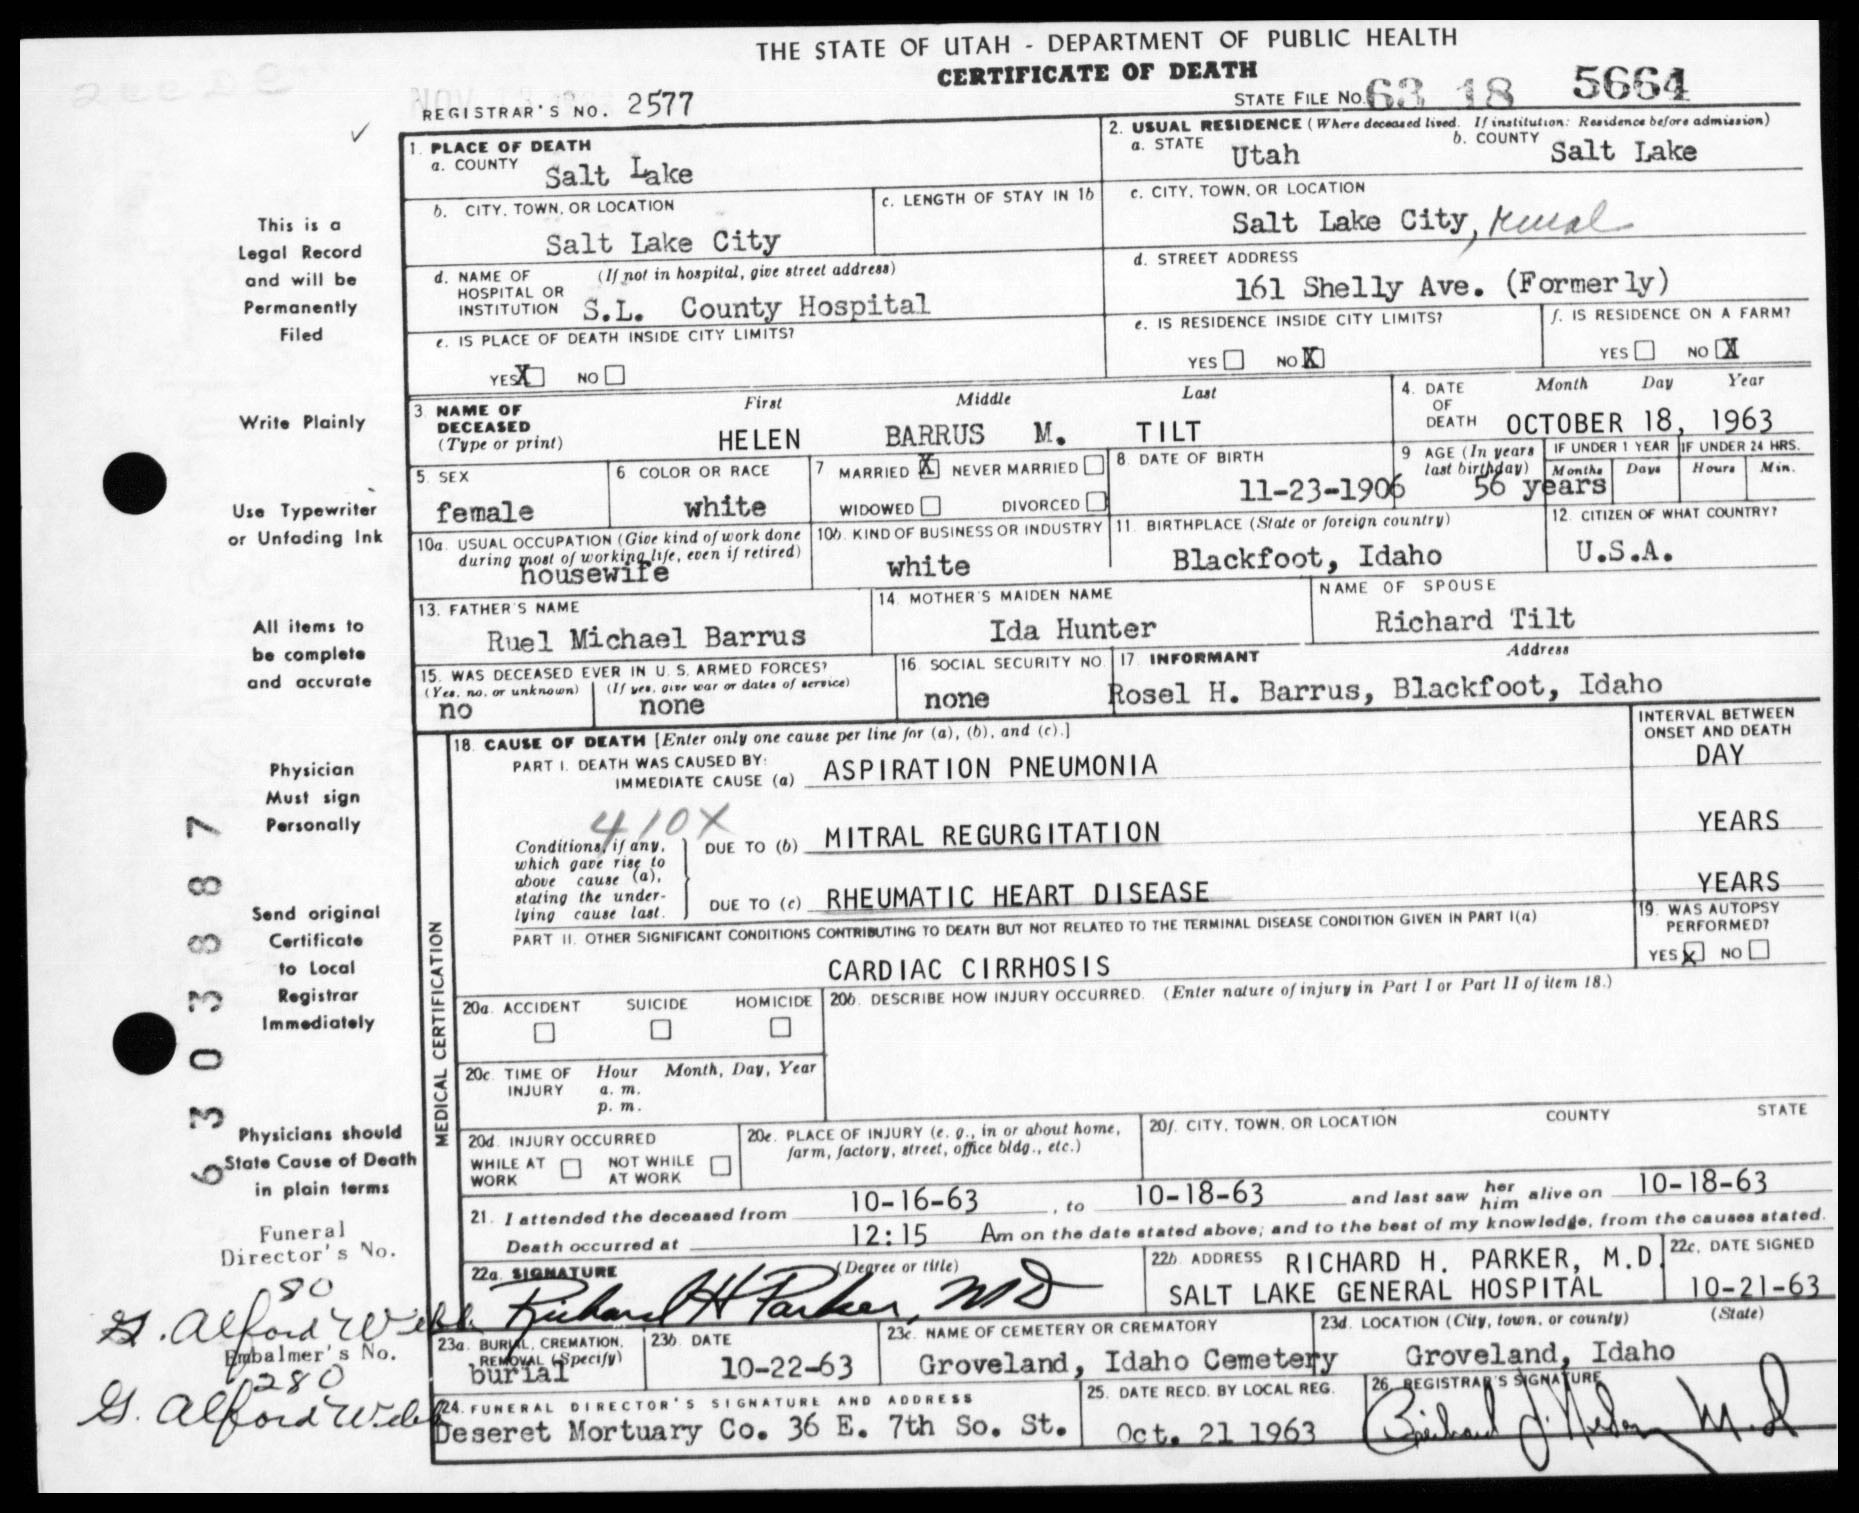 THE STATE OF UTAH - DEPARTMENT OF PUBLIC HEALTH
CERTIFICATE OF DEATH
REGISTRAR'S NO. 2577
STATE FILE NO. 63 18 5664
1. PLACE OF DEATH
a. COUNTY Salt Lake
2. USUAL RESIDENCE (Where deceased lived. If institution: Residence before admission)
a. STATE Utah
b. COUNTY Salt Lake
b. CITY, TOWN, OR LOCATION
Salt Lake City
c. LENGTH OF STAY IN 1b
c. CITY, TOWN, OR LOCATION
Salt Lake City, rural
d. NAME OF HOSPITAL OR INSTITUTION (If not in hospital, give street address)
S.L. County Hospital
d. STREET ADDRESS
161 Shelly Ave. (Formerly)
e. IS PLACE OF DEATH INSIDE CITY LIMITS?
YES X NO
e. IS RESIDENCE INSIDE CITY LIMITS?
YES NO X
f. IS RESIDENCE ON A FARM?
YES NO X
3. NAME OF DECEASED (Type or print)
First Middle Last
HELEN BARRUS M. TILT
4. DATE OF DEATH Month Day Year
OCTOBER 18, 1963
5. SEX
female
6. COLOR OR RACE
white
7 MARRIED X NEVER MARRIED
WIDOWED DIVORCED
8. DATE OF BIRTH
11-23-1906
9 AGE (In years last birthday)
56 years
IF UNDER 1 YEAR IF UNDER 24 HRS.
Months Days Hours Min.
10a. USUAL OCCUPATION (Give kind of work done during most of working life, even if retired)
housewife
10b. KIND OF BUSINESS OR INDUSTRY
white
11. BIRTHPLACE (State or foreign country)
Blackfoot, Idaho
12. CITIZEN OF WHAT COUNTRY?
U.S.A.
13. FATHER'S NAME
Ruel Michael Barrus
14. MOTHER'S MAIDEN NAME
Ida Hunter
NAME OF SPOUSE
Richard Tilt
15. WAS DECEASED EVER IN U. S. ARMED FORCES?
(Yes, no, or unknown) (If yes, give war or dates of service)
no none
16. SOCIAL SECURITY NO.
none
17. INFORMANT Address
Rosel H. Barrus, Blackfoot, Idaho
MEDICAL CERTIFICATION
18. CAUSE OF DEATH [Enter only one cause per line for (a), (b), and (c).]
INTERVAL BETWEEN ONSET AND DEATH
PART I. DEATH WAS CAUSED BY:
IMMEDIATE CAUSE (a) ASPIRATION PNEUMONIA DAY
410X
Conditions, if any, which gave rise to above cause (a), stating the underlying cause last.
DUE TO (b) MITRAL REGURGITATION YEARS
DUE TO (c) RHEUMATIC HEART DISEASE YEARS
PART II. OTHER SIGNIFICANT CONDITIONS CONTRIBUTING TO DEATH BUT NOT RELATED TO THE TERMINAL DISEASE CONDITION GIVEN IN PART I(a)
CARDIAC CIRRHOSIS
19. WAS AUTOPSY PERFORMED?
YES X NO
20a. ACCIDENT SUICIDE HOMICIDE
20b. DESCRIBE HOW INJURY OCCURRED. (Enter nature of injury in Part I or Part II of item 18.)
20c. TIME OF INJURY Hour Month, Day, Year
a. m.
p. m.
20d. INJURY OCCURRED
WHILE AT WORK NOT WHILE AT WORK
20e. PLACE OF INJURY (e. g., in or about home, farm, factory, street, office bldg., etc.)
20f. CITY, TOWN, OR LOCATION COUNTY STATE
21. I attended the deceased from 10-16-63, to 10-18-63 and last saw her him alive on 10-18-63
Death occurred at 12:15 Am on the date stated above; and to the best of my knowledge, from the causes stated.
22a. SIGNATURE (Degree or title)
Richard H Parker, MD
22b. ADDRESS RICHARD H. PARKER, M.D.
SALT LAKE GENERAL HOSPITAL
22c. DATE SIGNED
10-21-63
23a. BURIAL, CREMATION, REMOVAL (Specify)
burial
23b. DATE
10-22-63
23c. NAME OF CEMETERY OR CREMATORY
Groveland, Idaho Cemetery
23d. LOCATION (City, town, or county) (State)
Groveland, Idaho
24. FUNERAL DIRECTOR'S SIGNATURE AND ADDRESS
Deseret Mortuary Co. 36 E. 7th So. St.
25. DATE RECD. BY LOCAL REG.
Oct. 21 1963
26. REGISTRAR'S SIGNATURE
M.D.
This is a
Legal Record
and will be
Permanently
Filed
Write Plainly
Use Typewriter
or Unfading Ink
All items to
be complete
and accurate
Physician
Must sign
Personally
Send original
Certificate
to Local
Registrar
Immediately
Physicians should
State Cause of Death
in plain terms
6303887
Funeral
Director's No.
80
G. Alford Webb
Embalmer's No.
280
G. Alford Webb